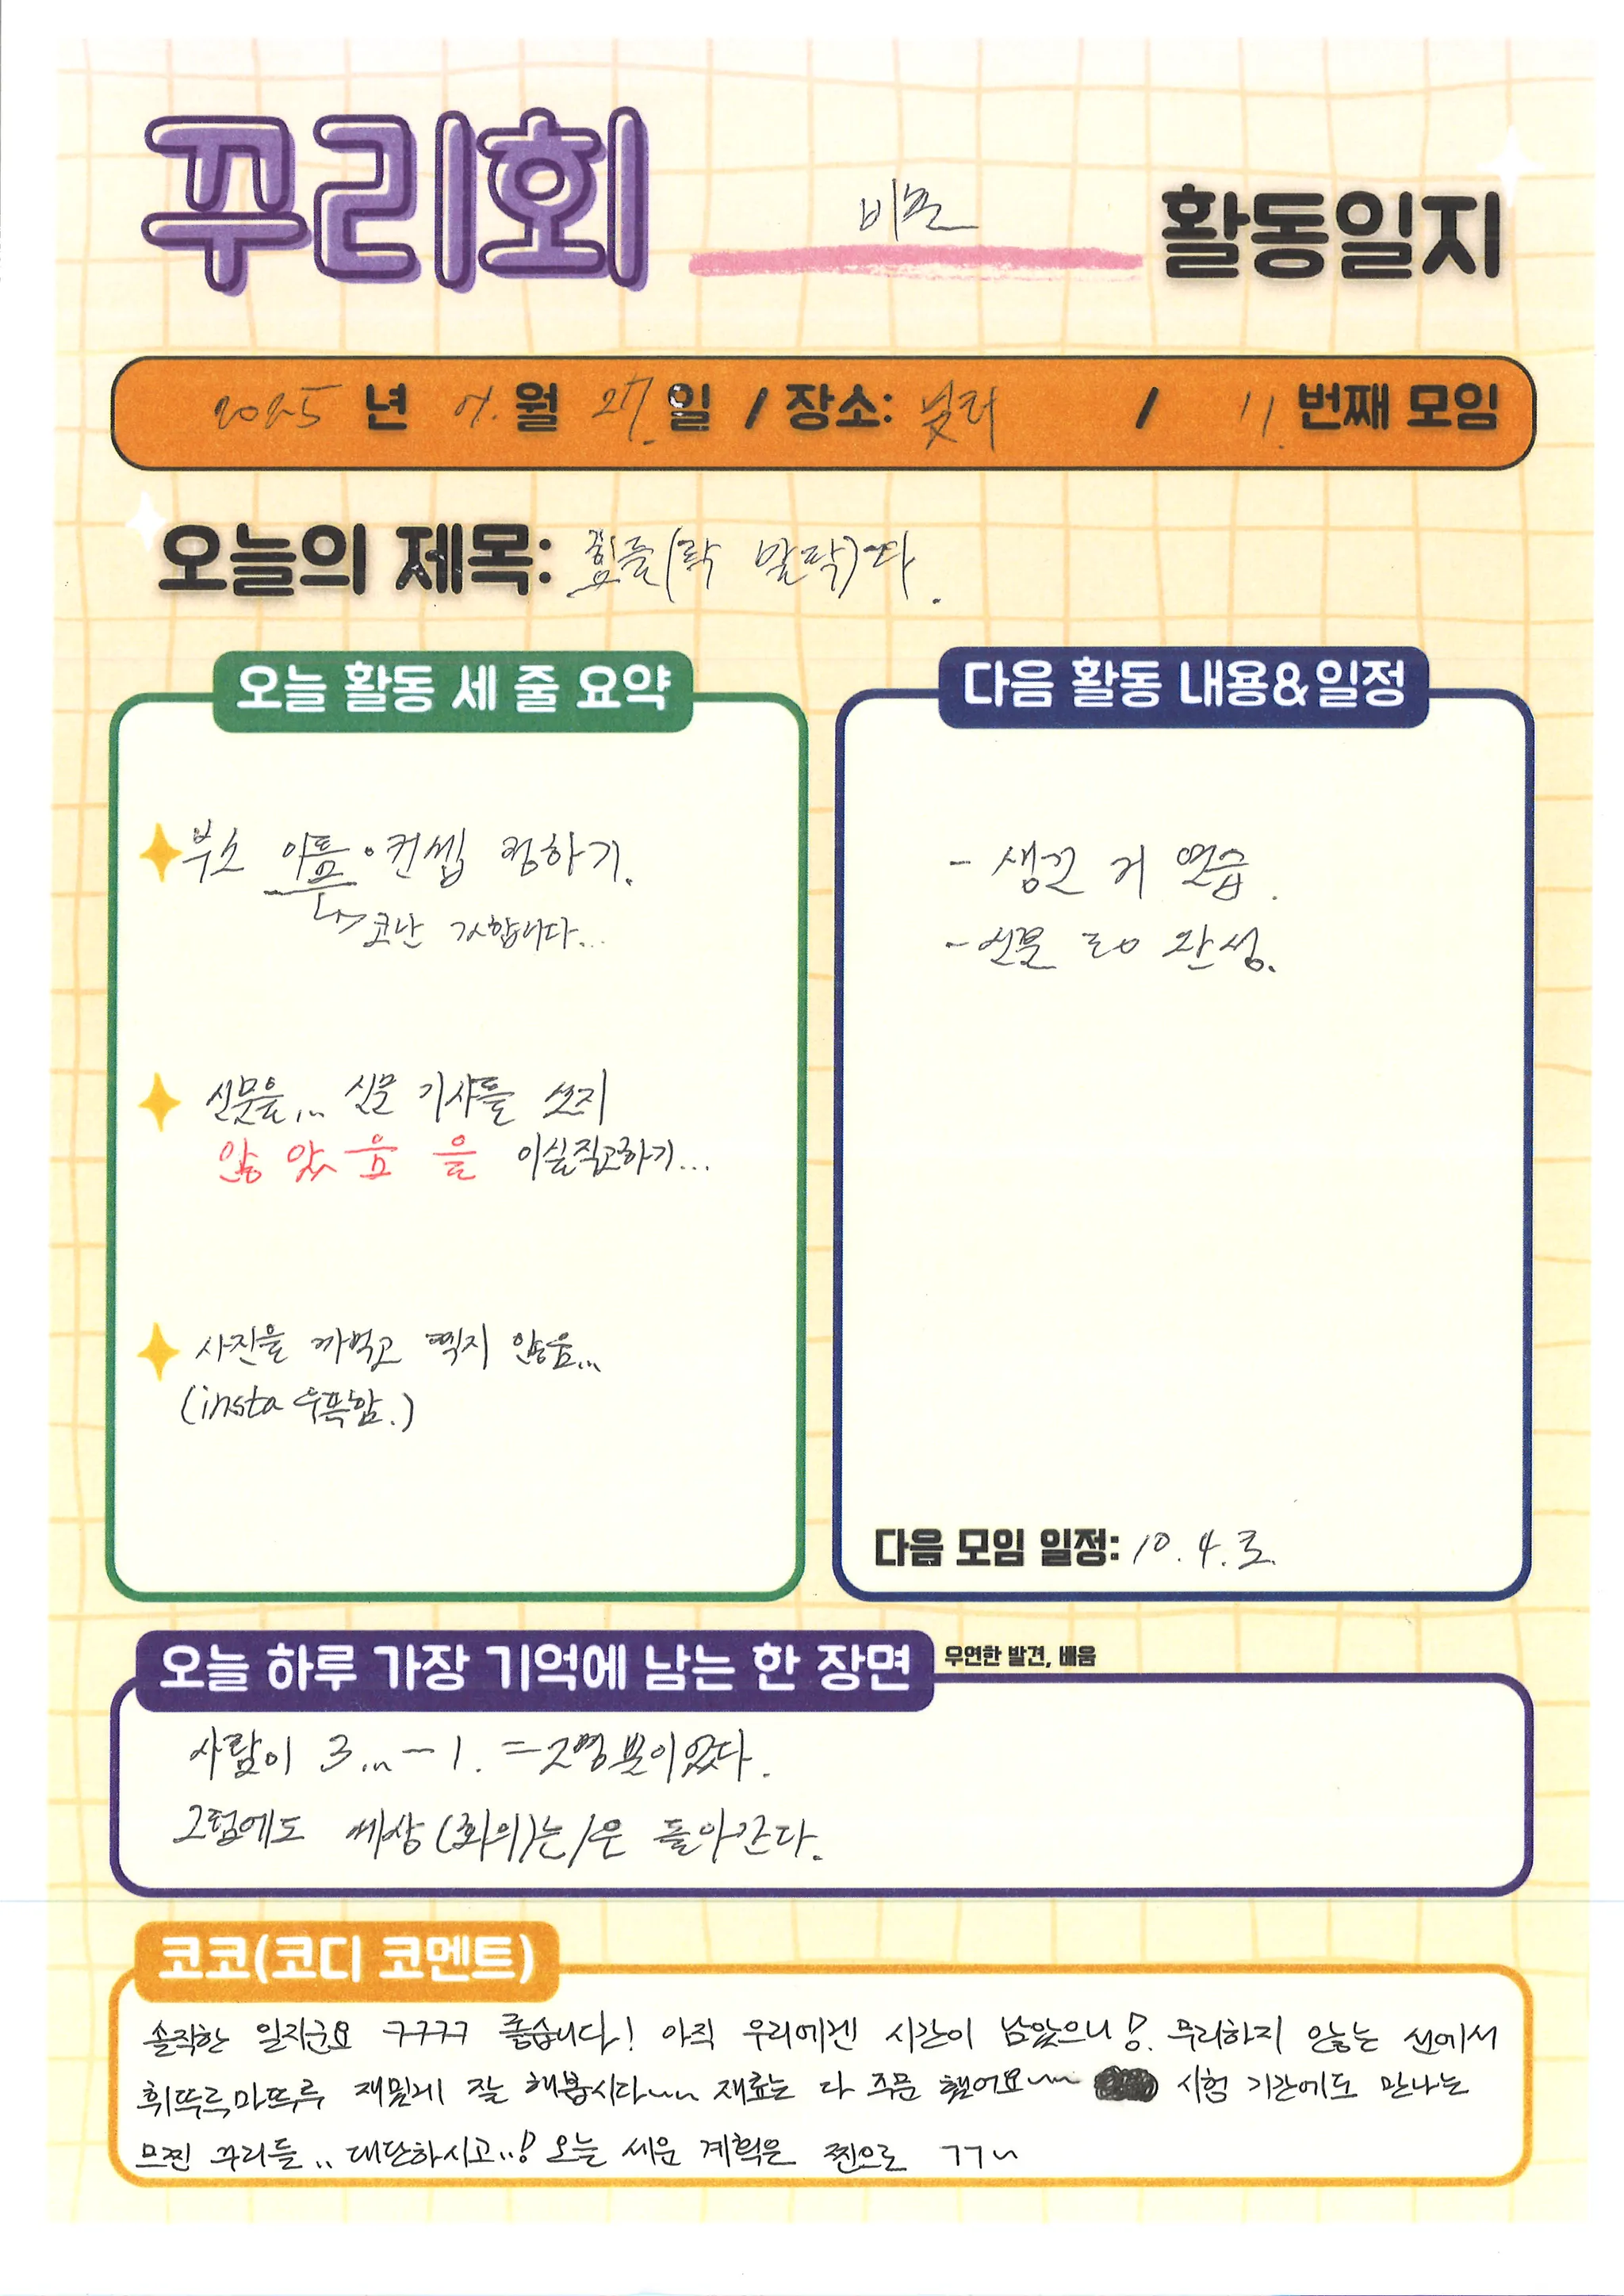 꾸리회 비문 활동일지
2025 년 9. 월 27. 일 / 장소: 낮터 / 11. 번째 모임
오늘의 제목: 힘들(락 말락)다.
오늘 활동 세 줄 요약
부스 이름·컨셉 정하기.
↳ 코난 강합니다...
신문을... 신문 기사를 쓰지
않았음을 이실직고하기...
사진을 까먹고 찍지 않음...
(insta 우뜩함.)
다음 활동 내용&일정
- 생긴 거 연습.
- 신문 완성.
다음 모임 일정: 10. 4. 토.
오늘 하루 가장 기억에 남는 한 장면 우연한 발견, 배움
사람이 3...-1. =2명 뿐이었다.
그럼에도 세상(회의)는/은 돌아간다.
코코(코디 코멘트)
솔직한 일지군요 ㅋㅋㅋㅋ 좋습니다! 아직 우리에겐 시간이 남았으니!. 무리하지 않는 선에서
휘뚜루마뚜루 재밌게 잘 해봅시다~~ 재료는 다 주문 했어요~~ 시험 기간에도 만나는
므찐 꾸리들.. 대단하시고..! 오늘 세운 계획은 찐으로 ㄱㄱ~